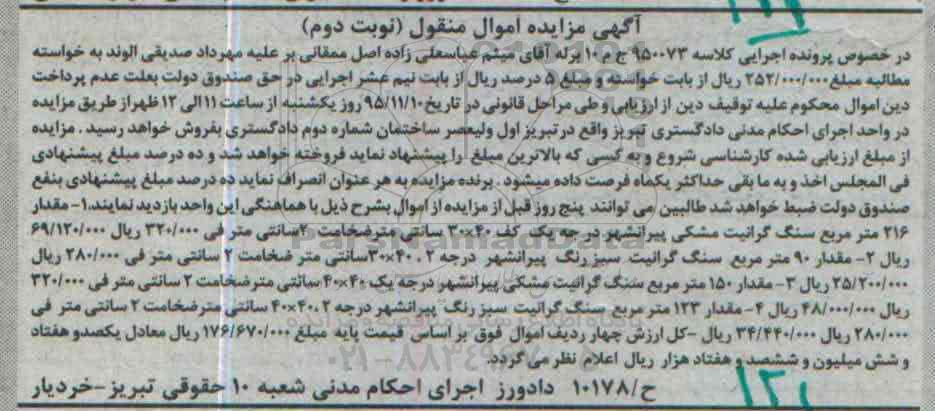 آگهی مزایده اموال منقول (نوبت دوم)
در خصوص پرونده اجرایی کلاسه ۹۵۰۰۷۳ ج م ۱۰ برله آقای میثم عباسعلی زاده اصل ممقانی بر علیه مهرداد صدیقی الوند به خواسته
مطالبه مبلغ ۲۵۲/۰۰۰/۰۰۰ ریال از بابت خواسته و مبلغ ۵ درصد ریال از بابت نیم عشر اجرایی در حق صندوق دولت بعلت عدم پرداخت
دین اموال محکوم علیه توقیف دین از ارزیابی و طی مراحل قانونی در تاریخ ۹۵/۱۱/۱۰ روز یکشنبه از ساعت ۱۱ الی ۱۲ ظهر از طریق مزایده
در واحد اجرای احکام مدنی دادگستری تبریز واقع در تبریز اول ولیعصر ساختمان شماره دوم دادگستری بفروش خواهد رسید . مزایده
از مبلغ ارزیابی شده کارشناسی شروع و به کسی که بالاترین مبلغ را پیشنهاد نماید فروخته خواهد شد و ده درصد مبلغ پیشنهادی
فی المجلس اخذ و به ما بقی حداکثر یکماه فرصت داده میشود . برنده مزایده به هر عنوان انصراف نماید ده درصد مبلغ پیشنهادی بنفع
صندوق دولت ضبط خواهد شد طالبین می توانند پنج روز قبل از مزایده از اموال بشرح ذیل با هماهنگی این واحد بازدید نمایند.۱- مقدار
۲۱۶ متر مربع سنگ گرانیت مشکی پیرانشهر درجه یک کف ۴۰×۳۰ سانتی مترضخامت ۲سانتی متر فی ۳۲۰/۰۰۰ ریال ۶۹/۱۲۰/۰۰۰
ریال ۲- مقدار ۹۰ متر مربع سنگ گرانیت سبز رنگ پیرانشهر درجه ۲ ، ۴۰×۳۰سانتی متر ضخامت ۲ سانتی متر فی ۲۸۰/۰۰۰ ریال
۲۵/۲۰۰/۰۰۰ ریال ۳- مقدار ۱۵۰ متر مربع سنگ گرانیت مشکی پیرانشهر درجه یک ۴۰×۴۰ سانتی مترضخامت ۲ سانتی متر فی ۳۲۰/۰۰۰
ریال ۴۸/۰۰۰/۰۰۰ ریال ۴- مقدار ۱۲۳ متر مربع سنگ گرانیت سبز رنگ پیرانشهر درجه ۲ ، ۴۰×۴۰ سانتی مترضخامت ۲ سانتی متر فی
۲۸۰/۰۰۰ ریال ۳۴/۴۴۰/۰۰۰ ریال -کل ارزش چهار ردیف اموال فوق بر اساس قیمت پایه مبلغ ۱۷۶/۶۷۰/۰۰۰ ریال معادل یکصدو هفتاد
و شش میلیون و ششصد و هفتاد هزار ریال اعلام نظر می گردد.
ح/۱۰۱۷۸ دادورز اجرای احکام مدنی شعبه ۱۰ حقوقی تبریز-خردیار
ParsNamadData
۰۲۱-۸۸۳۴۹۶۷۰